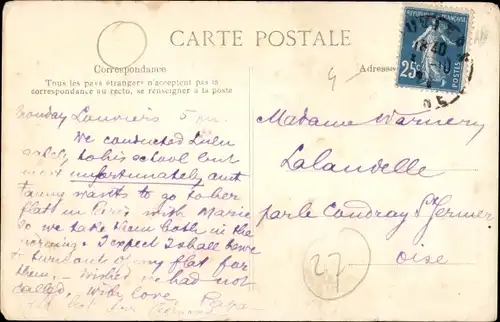 CARTE POSTALE
Correspondance
Tous les pays étrangers n'acceptent pas la
correspondance au recto, se renseigner à la poste
Adresse
RÉPUBLIQUE FRANÇAISE
25c
Monday Louviers 5 pm.
We conducted Lulu
safely to his school but
most unfortunately aunt
Fanny wants to go to her
flat in Paris with Marie
So we take them both in the
morning. I expect I shall have
to turn out of my flat for
them, — wished we had not
called, — With love, Papa
Madame Warnery
Lalandelle
par le Coudray St Germer
Oise
27